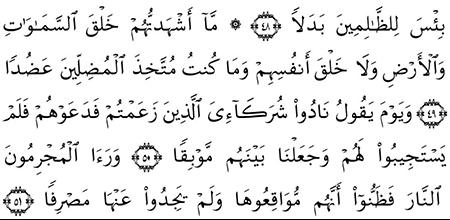 بِئْسَ لِلظَّٰلِمِينَ بَدَلًا ﴿٤٨﴾ ۞ مَّآ أَشْهَدتُّهُمْ خَلْقَ ٱلسَّمَٰوَٰتِ
وَٱلْأَرْضِ وَلَا خَلْقَ أَنفُسِهِمْ وَمَا كُنتُ مُتَّخِذَ ٱلْمُضِلِّينَ عَضُدًا
﴿٤٩﴾ وَيَوْمَ يَقُولُ نَادُوا۟ شُرَكَآءِىَ ٱلَّذِينَ زَعَمْتُمْ فَدَعَوْهُمْ فَلَمْ
يَسْتَجِيبُوا۟ لَهُمْ وَجَعَلْنَا بَيْنَهُم مَّوْبِقًا ﴿٥٠﴾ وَرَءَا ٱلْمُجْرِمُونَ
ٱلنَّارَ فَظَنُّوٓا۟ أَنَّهُم مُّوَاقِعُوهَا وَلَمْ يَجِدُوا۟ عَنْهَا مَصْرِفًا ﴿٥١﴾